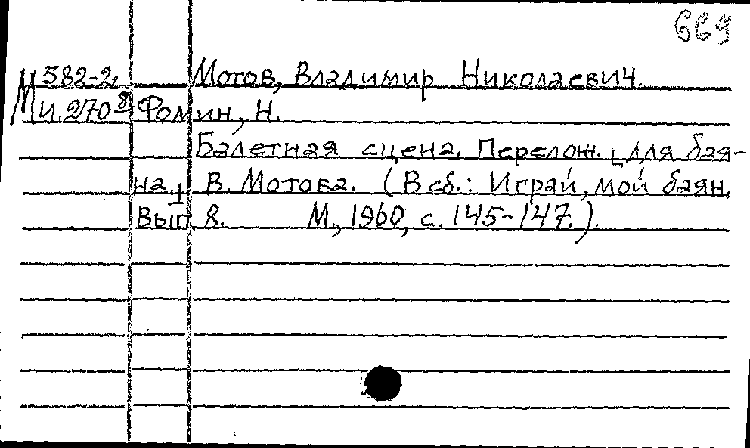 669
М 582-2. Мотов, Владимир Николаевич.
И.270-8 Фомин, Н.
Балетная сцена. Перелож. [для бая-
на] В. Мотова. (В сб.: Играй, мой баян.
Вып 8. М., 1960, с. 145-147.)